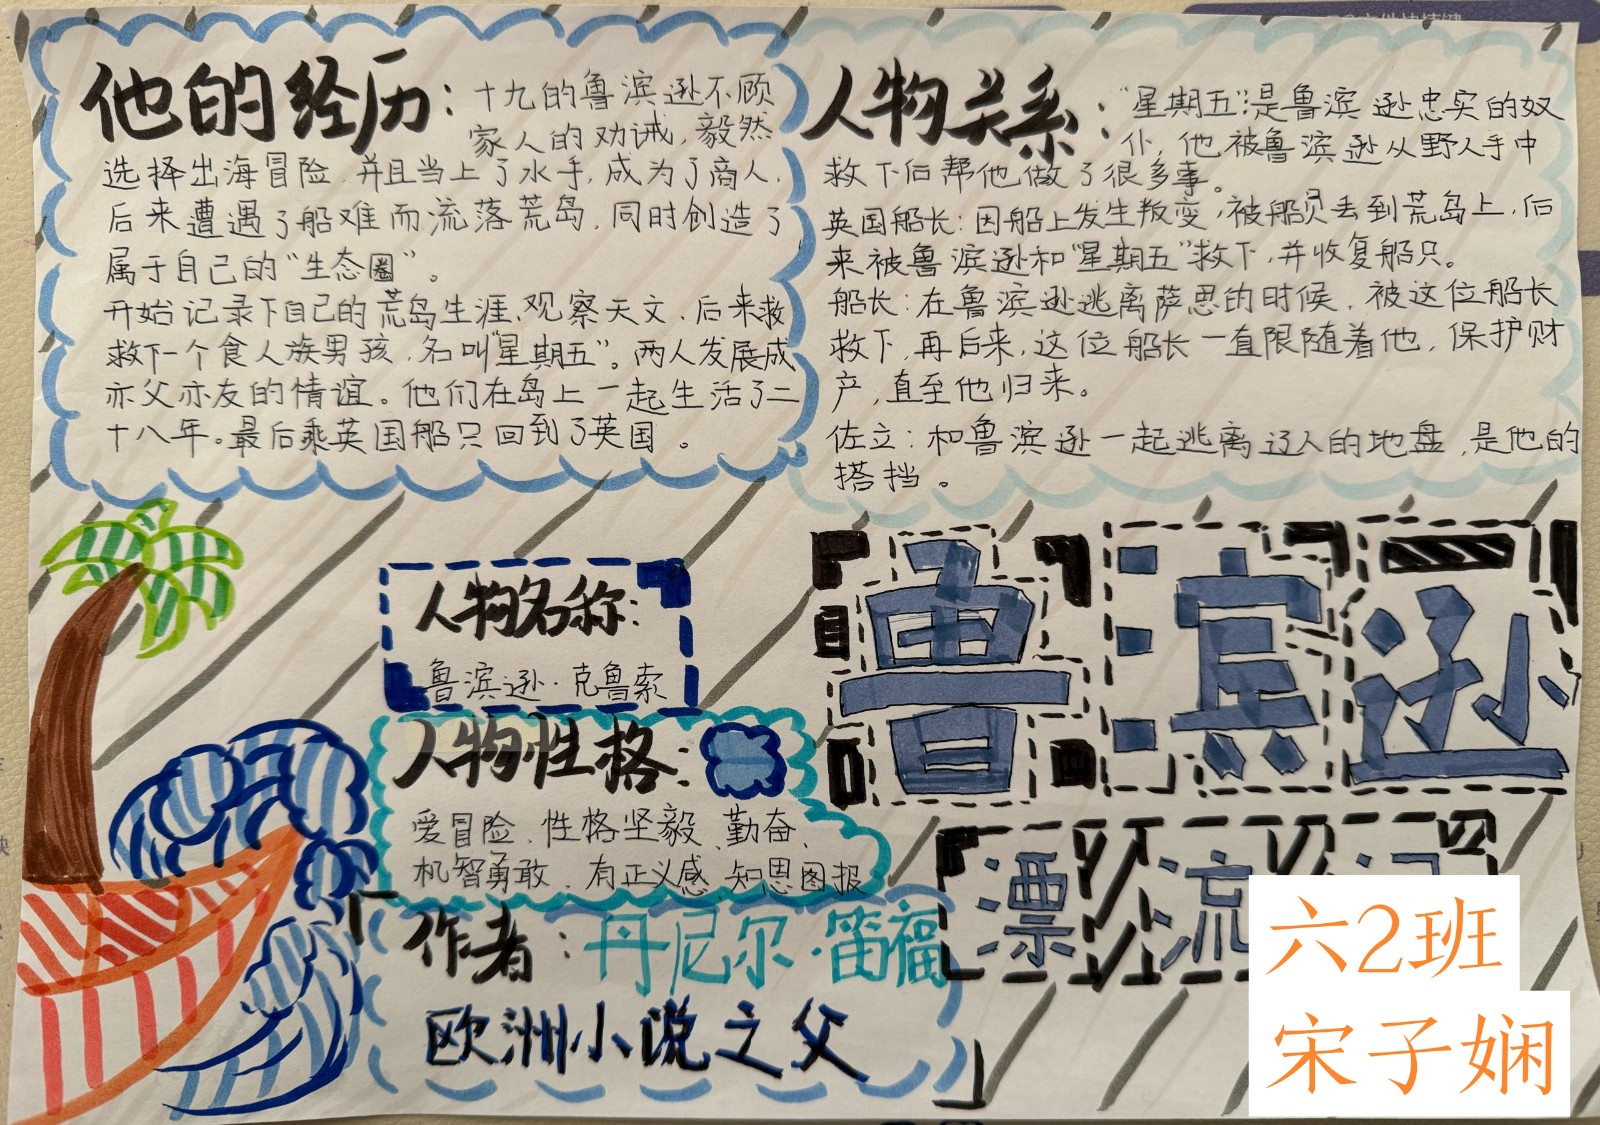 他的经历：十九的鲁滨逊不顾
家人的劝诫，毅然
选择出海冒险，并且当上了水手，成为了商人，
后来遭遇了船难而流落荒岛，同时创造了
属于自己的“生态圈”。
开始记录下自己的荒岛生涯，观察天文，后来救
救下一个食人族男孩，名叫“星期五”。两人发展成
亦父亦友的情谊。他们在岛上一起生活了二
十八年。最后乘英国船只回到了英国。
人物关系：“星期五”：是鲁滨逊忠实的奴
仆，他被鲁滨逊从野人手中
救下后帮他做了很多事。
英国船长：因船上发生叛变，被船员丢到荒岛上，后
来被鲁滨逊和“星期五”救下，并收复船只。
船长：在鲁滨逊逃离萨思的时候，被这位船长
救下，再后来，这位船长一直限随着他，保护财
产，直至他归来。
佐立：和鲁滨逊一起逃离辽人的地盘，是他的
搭挡。
人物名称：
鲁滨逊·克鲁索
人物性格：
爱冒险、性格坚毅、勤奋、
机智勇敢、有正义感、知恩图报
作者：丹尼尔·笛福
欧洲小说之父
鲁滨逊
漂流
六2班
宋子娴